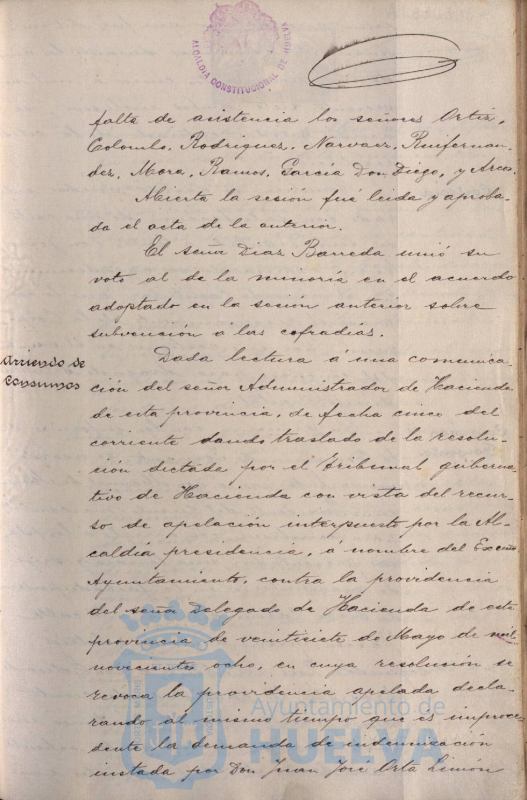 ALCALDIA CONSTITUCIONAL DE HUELVA
falta de asistencia los señores Ortiz,
Colombo, Rodriguez, Narvaez, Ruifernan-
dez, Mora, Ramos, García Don Diego, y Arcos.
Abierta la sesión fué leida y aproba-
da el acta de la anterior.
El señor Diaz Barreda unió su
voto al de la minoría en el acuerdo
adoptado en la sesión anterior sobre
subvención á las cofradías.
Arriendo de
Consumos
Dada lectura á una comunica-
ción del señor Administrador de Hacienda
de esta provincia, de fecha cinco del
corriente dando traslado de la resolu-
ción dictada por el Tribunal guberna-
tivo de Hacienda con vista del recur-
so de apelación interpuesto por la Al-
caldía presidencia, á nombre del Excmo
Ayuntamiento, contra la providencia
del señor Delegado de Hacienda de esta
provincia de veintisiete de Mayo de mil
novecientos ocho, en cuya resolución se
revoca la providencia apelada decla-
rando al mismo tiempo que es improce-
dente la demanda de indemnización
instada por Don Juan José Orta Limón
Ayuntamiento de
HUELVA